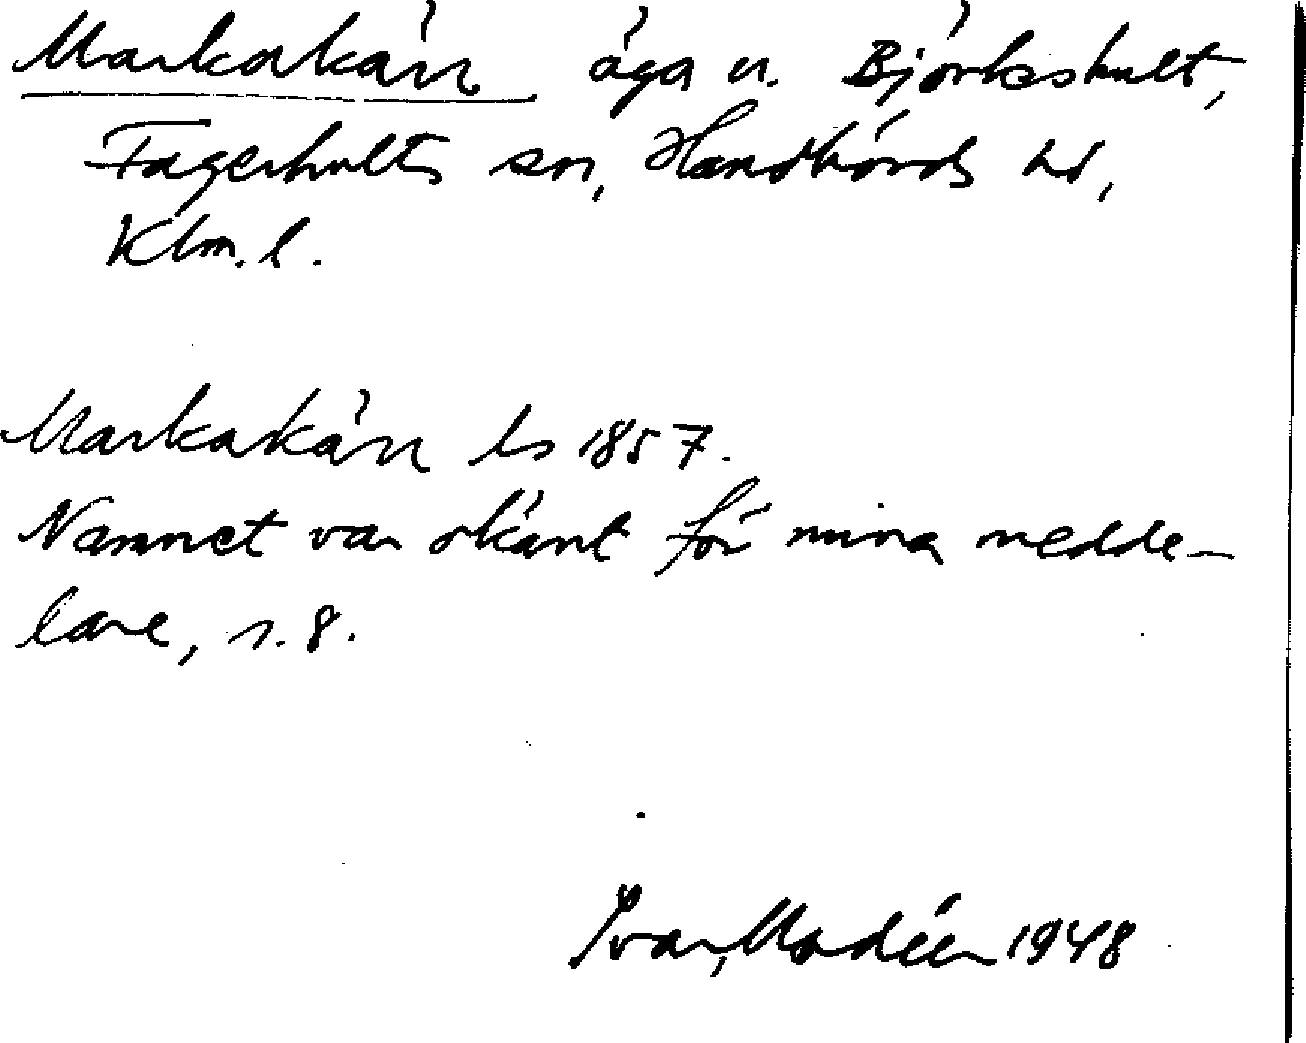 Markakärr äga u. Björkshult,
Fagerhults sn, Handbörds hd,
Klm. l.
Markakärr ls 1857.
Namnet var okänt för mina medde-
lare, s. 8.
Ivar Modéer 1948